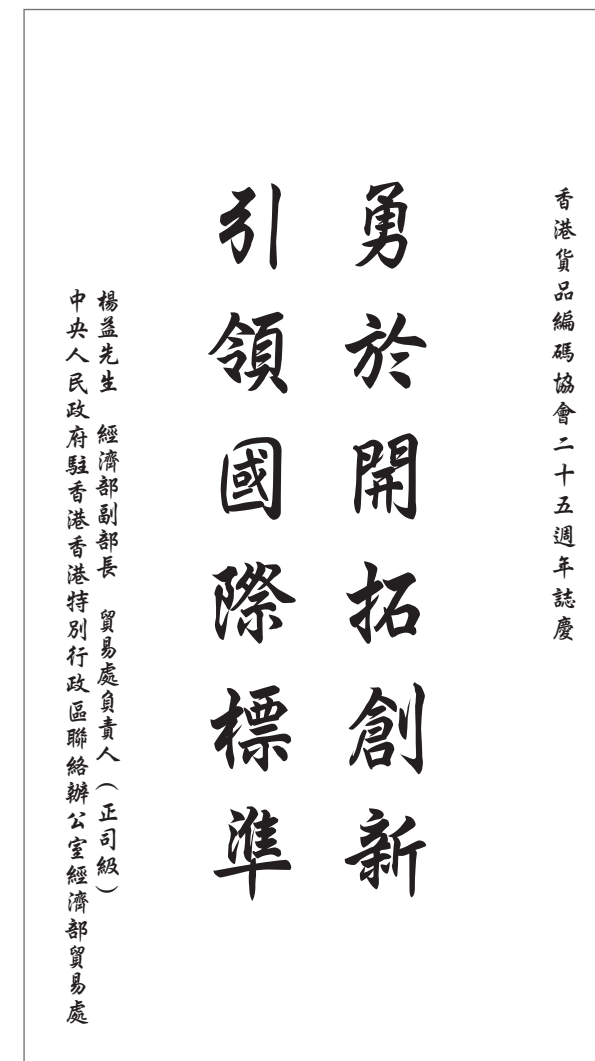 香港貨品編碼協會二十五週年誌慶
勇於開拓創新
引領國際標準
楊益先生 經濟部副部長 貿易處負責人（正司級）
中央人民政府駐香港香港特別行政區聯絡辦公室經濟部貿易處